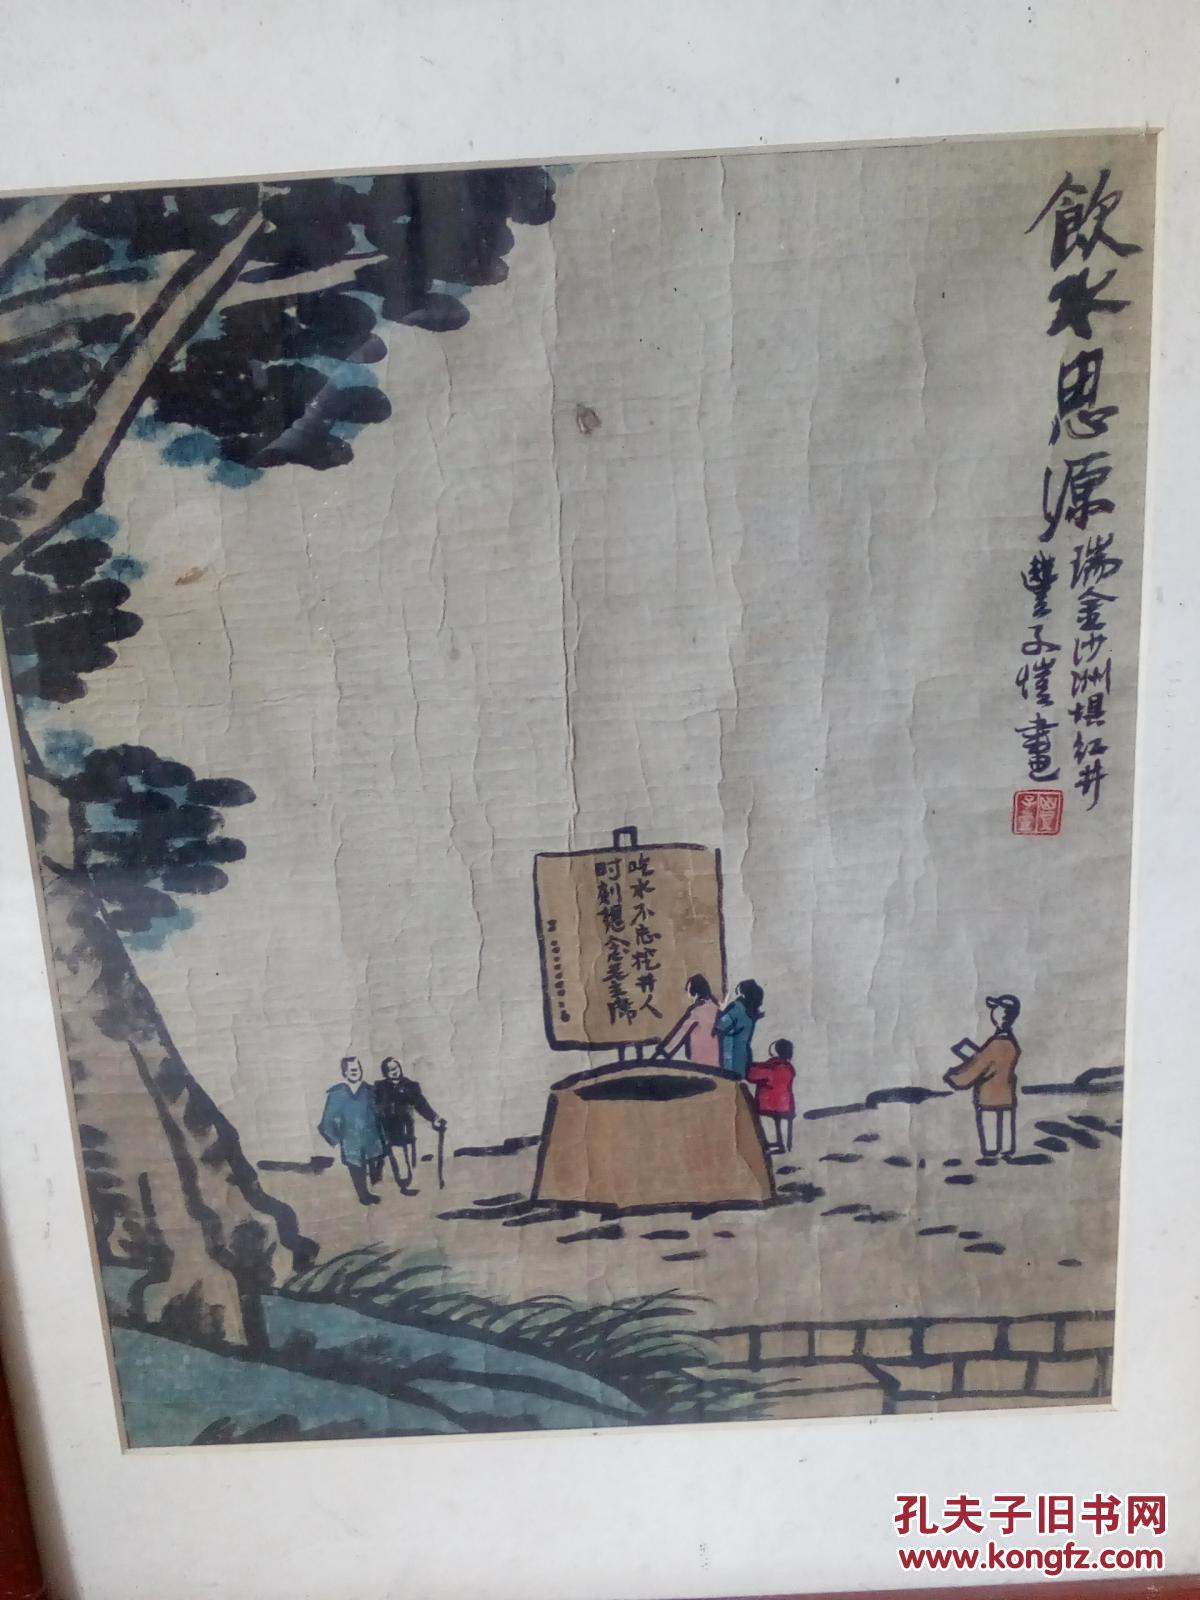 飲水思源
瑞金沙洲垻紅井
豐子愷畫
吃水不忘挖井人
时刻想念毛主席
孔夫子旧书网
www.kongfz.com